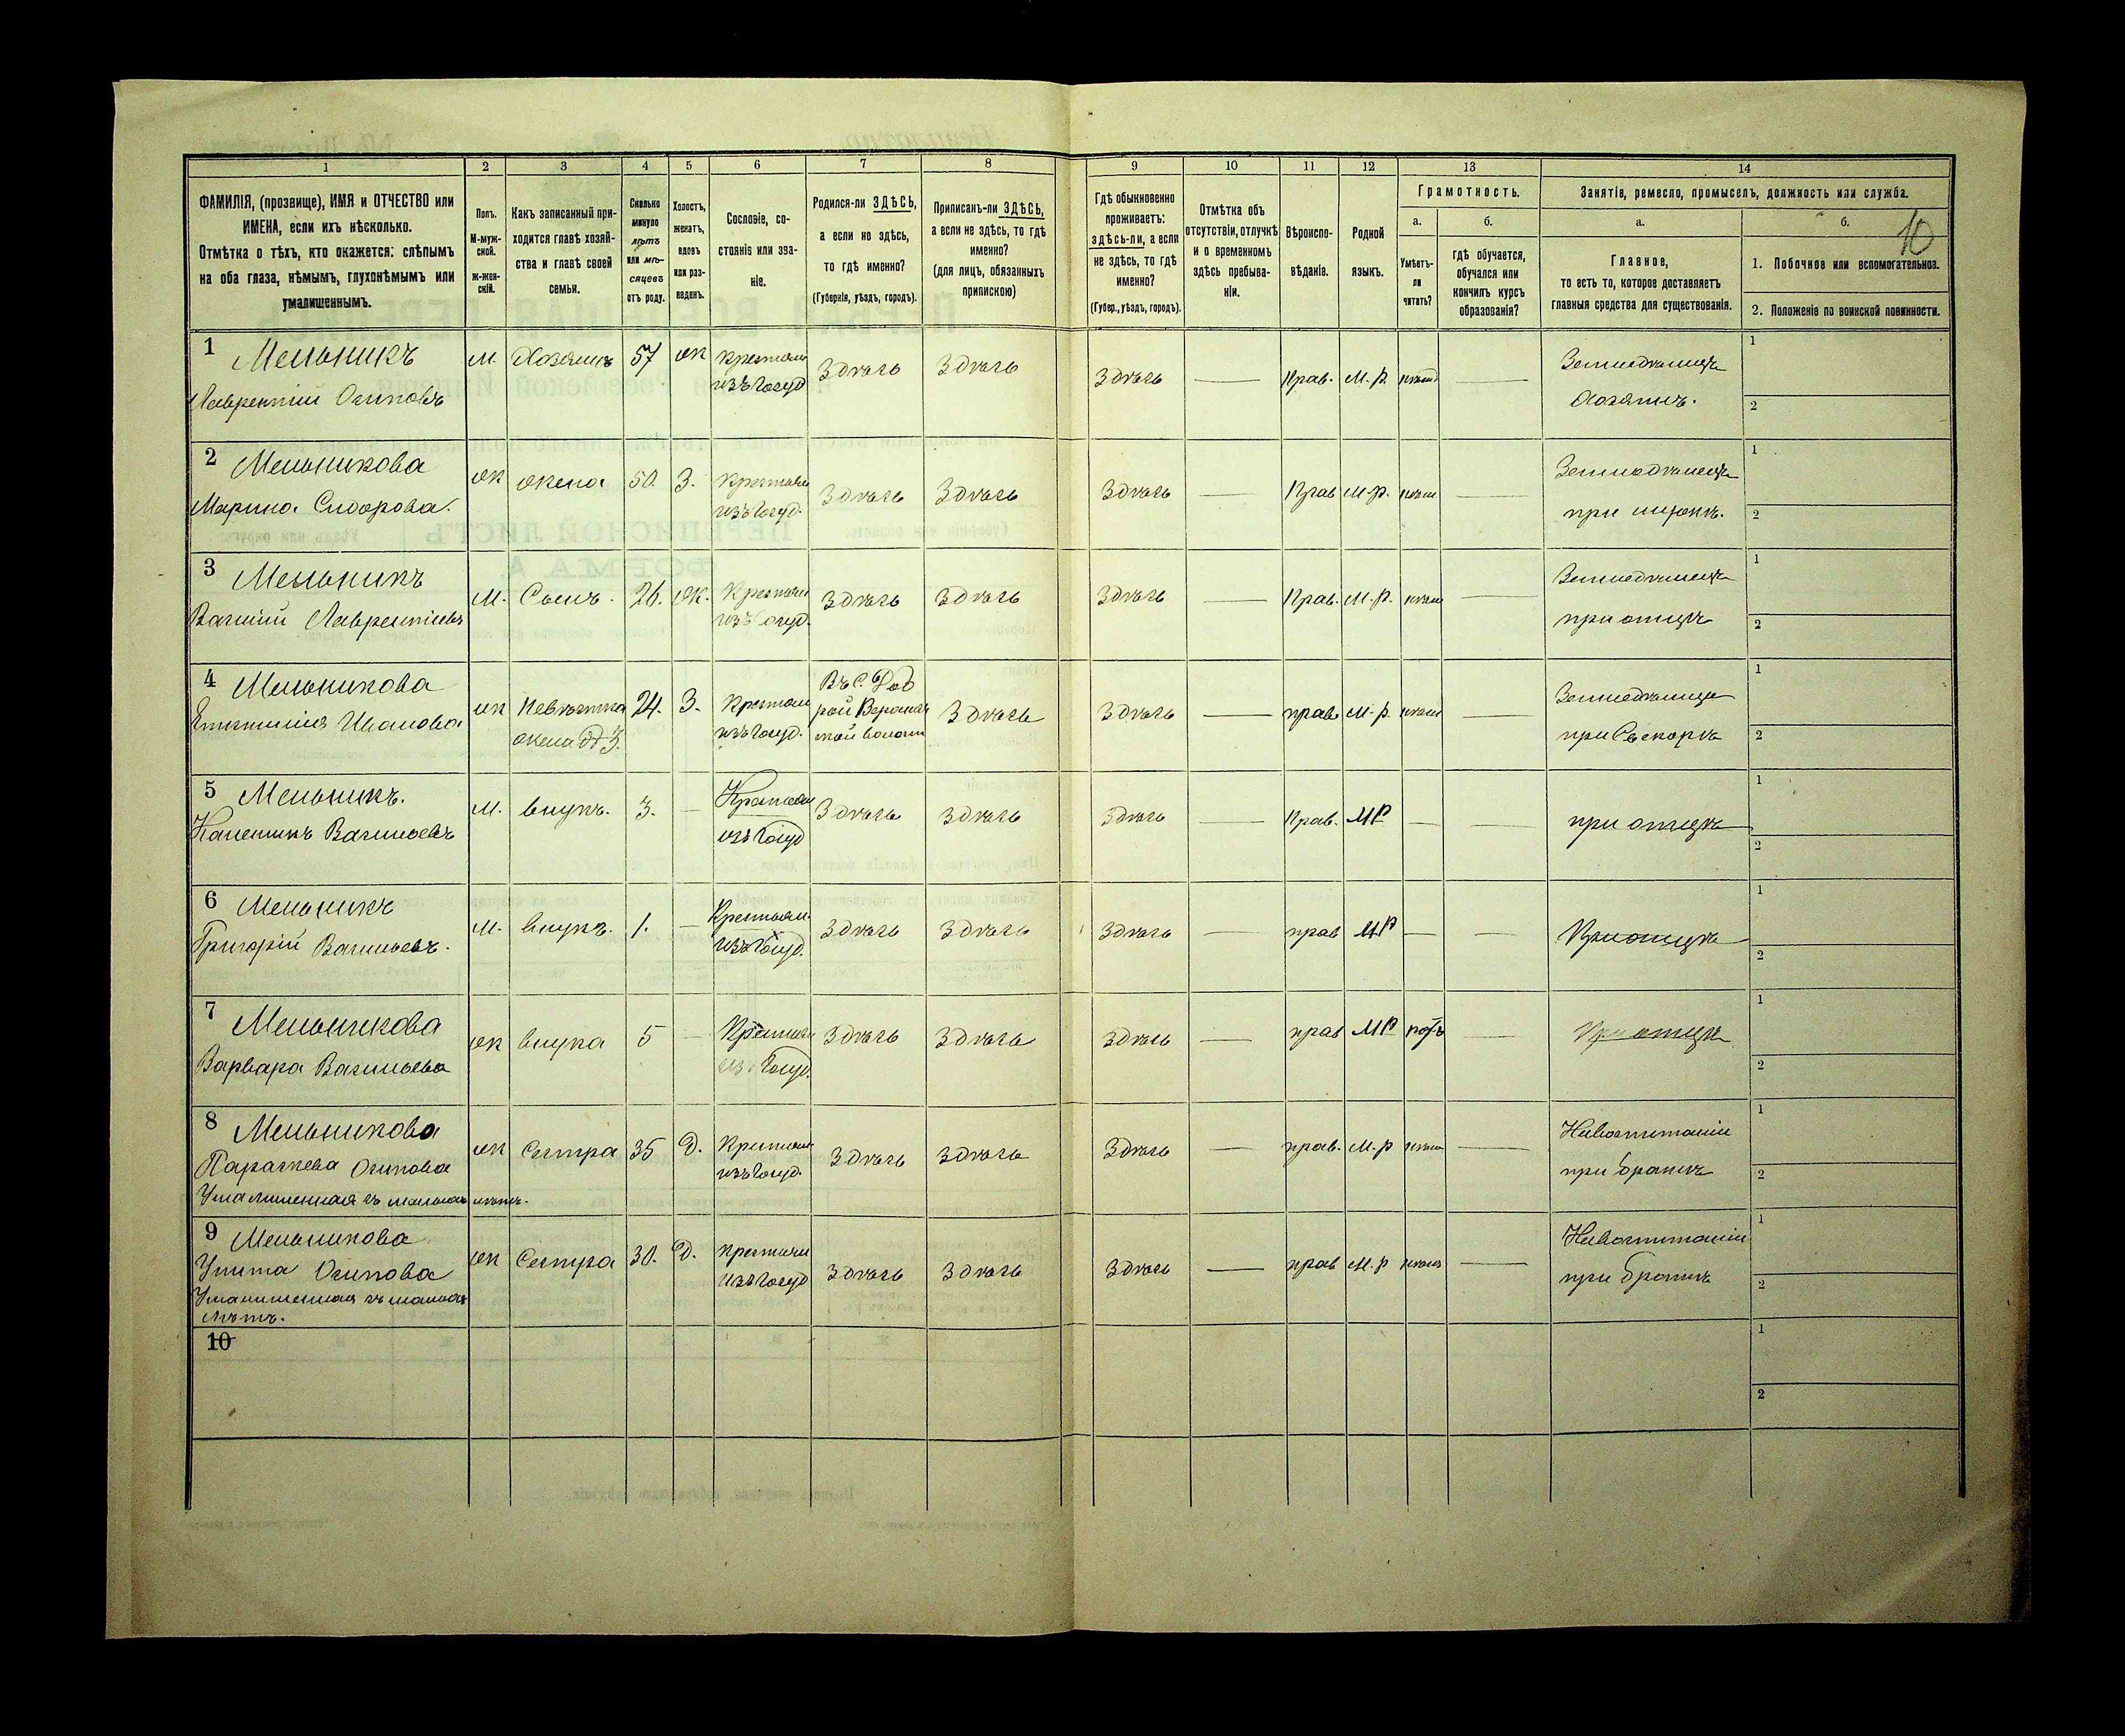 10
1 2 3 4 5 6 7 8 9 10 11 12 13 14
ФАМИЛІЯ, (прозвище), ИМЯ и ОТЧЕСТВО или
ИМЕНА, если ихъ нѣсколько.
Отмѣтка о тѣхъ, кто окажется: слѣпымъ
на оба глаза, нѣмымъ, глухонѣмымъ или
умалишеннымъ.
Полъ.
М-муж-
ской.
ж-жен-
скій.
Какъ записанный при-
ходится главѣ хозяй-
ства и главѣ своей
семьи.
Сколько
минуло
лѣтъ
или мѣ-
сяцевъ
отъ роду.
Холостъ,
женатъ,
вдовъ
или раз-
веденъ.
Сословіе, со-
стояніе или зва-
ніе.
Родился-ли ЗДѢСЬ,
а если не здѣсь,
то гдѣ именно?
(Губернія, уѣздъ, городъ).
Приписанъ-ли ЗДѢСЬ,
а если не здѣсь, то гдѣ
именно?
(для лицъ, обязанныхъ
припискою)
Гдѣ обыкновенно
проживаетъ:
здѣсь-ли, а если
не здѣсь, то гдѣ
именно?
(Губер., уѣздъ, городъ).
Отмѣтка объ
отсутствіи, отлучкѣ
и о временномъ
здѣсь пребыва-
ніи.
Вѣроиспо-
вѣданіе.
Родной
языкъ.
Грамотность.
а.
Умѣетъ-
ли
читать?
б.
гдѣ обучается,
обучался или
кончилъ курсъ
образованія?
Занятіе, ремесло, промыселъ, должность или служба.
а.
Главное,
то есть то, которое доставляетъ
главныя средства для существованія.
б.
1. Побочное или вспомогательное.
2. Положеніе по воинской повинности.
1 Мельникъ
Лаврентій Осиповъ
м. Хозяинъ 57 ж Крестьян
изъ госуд
Здѣсь Здѣсь Здѣсь — Прав. М.р. —
Земледѣлецъ
Хозяинъ.
1
2
2 Мельникова
Марина Сидорова.
ж жена 50. З. Крестьян
изъ госуд.
Здѣсь Здѣсь Здѣсь — Прав М.р. —
Земледѣлецъ
при
1
2
3 Мельникъ
Василій Лаврентіевъ
м. Сынъ. 26. ж. Крестьян
изъ госуд.
Здѣсь Здѣсь Здѣсь — Прав. М.р. —
Земледѣлецъ
при отцѣ
1
2
4 Мельникова
Ивановна
ж Невѣстка
жена
24. З. Крестьян
изъ госуд.
Въ с.
Здѣсь Здѣсь — прав М.р. —
при Свекорѣ
1
2
5 Мельникъ.
Васильевъ
м. внукъ. 3. — Крестьян
изъ госуд
Здѣсь Здѣсь Здѣсь — Прав. МР — —
при отцѣ
1
2
6 Мельникъ
Григорій Васильевъ.
м. внукъ. 1. — Крестьян.
изъ госуд.
Здѣсь Здѣсь Здѣсь — прав МР — —
При отцѣ
1
2
7 Мельникова
Варвара Васильева
ж внука 5 — Крестьян
изъ госуд.
Здѣсь Здѣсь Здѣсь — прав МР —
При отцѣ
1
2
8 Мельникова
Параскева Осипова
Умалишенная съ малыхъ лѣтъ.
ж Сестра 35 Д. Крестьян
изъ госуд.
Здѣсь Здѣсь Здѣсь — прав. М.р —
На воспитаніи
при братѣ
1
2
9 Мельникова
Улита Осипова
Умалишенная съ малыхъ
лѣтъ.
ж Сестра 30. Д. Крестьян
изъ госуд
Здѣсь Здѣсь Здѣсь — прав М.р —
На воспитаніи
при братѣ
1
2
10
1
2